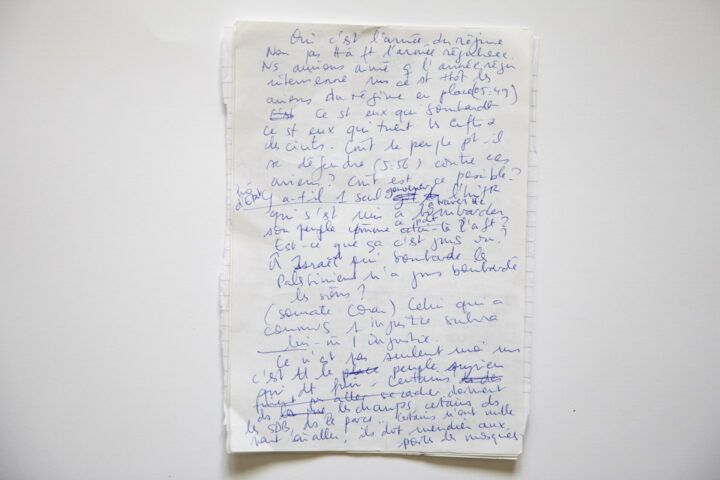 Oui c'est l'armée du régime
Non pas tt à ft l'armée régulière.
Ns aurions aimé q l'armée régu
intervienne mais ce st ttôt les
avions du régime en place (05:49)
Ce st eux qui bombarde
ce st eux qui tuent les enfts
des civils. Cmt le peuple pt-il
se défendre (5:56) contre ces
avions? Cmt est ce possible?
Y a-t-il 1 seul gouverneur ds l'histR
d'état
qui s'est mis à bombarder
à travers le
son peuple comme celui-là l'a ft?
à part
Est-ce que ça c'est jms vu?
Israël qui bombarde les
Palestiniens n'a jms bombardé
les siens?
(sourate Coran) Celui qui a
commis 1 injustice subira
lui-m 1 injustice.
Ce n'est pas seulent moi mais
c'est tt le place peuple syrien
qui dt fuir. Certains
aller se cacher, dorment
ds les champs, certains ds
les SDB, ds le parc.. Certains n'ont nulle
part où aller! ils doit mendier aux
porte les mosquées